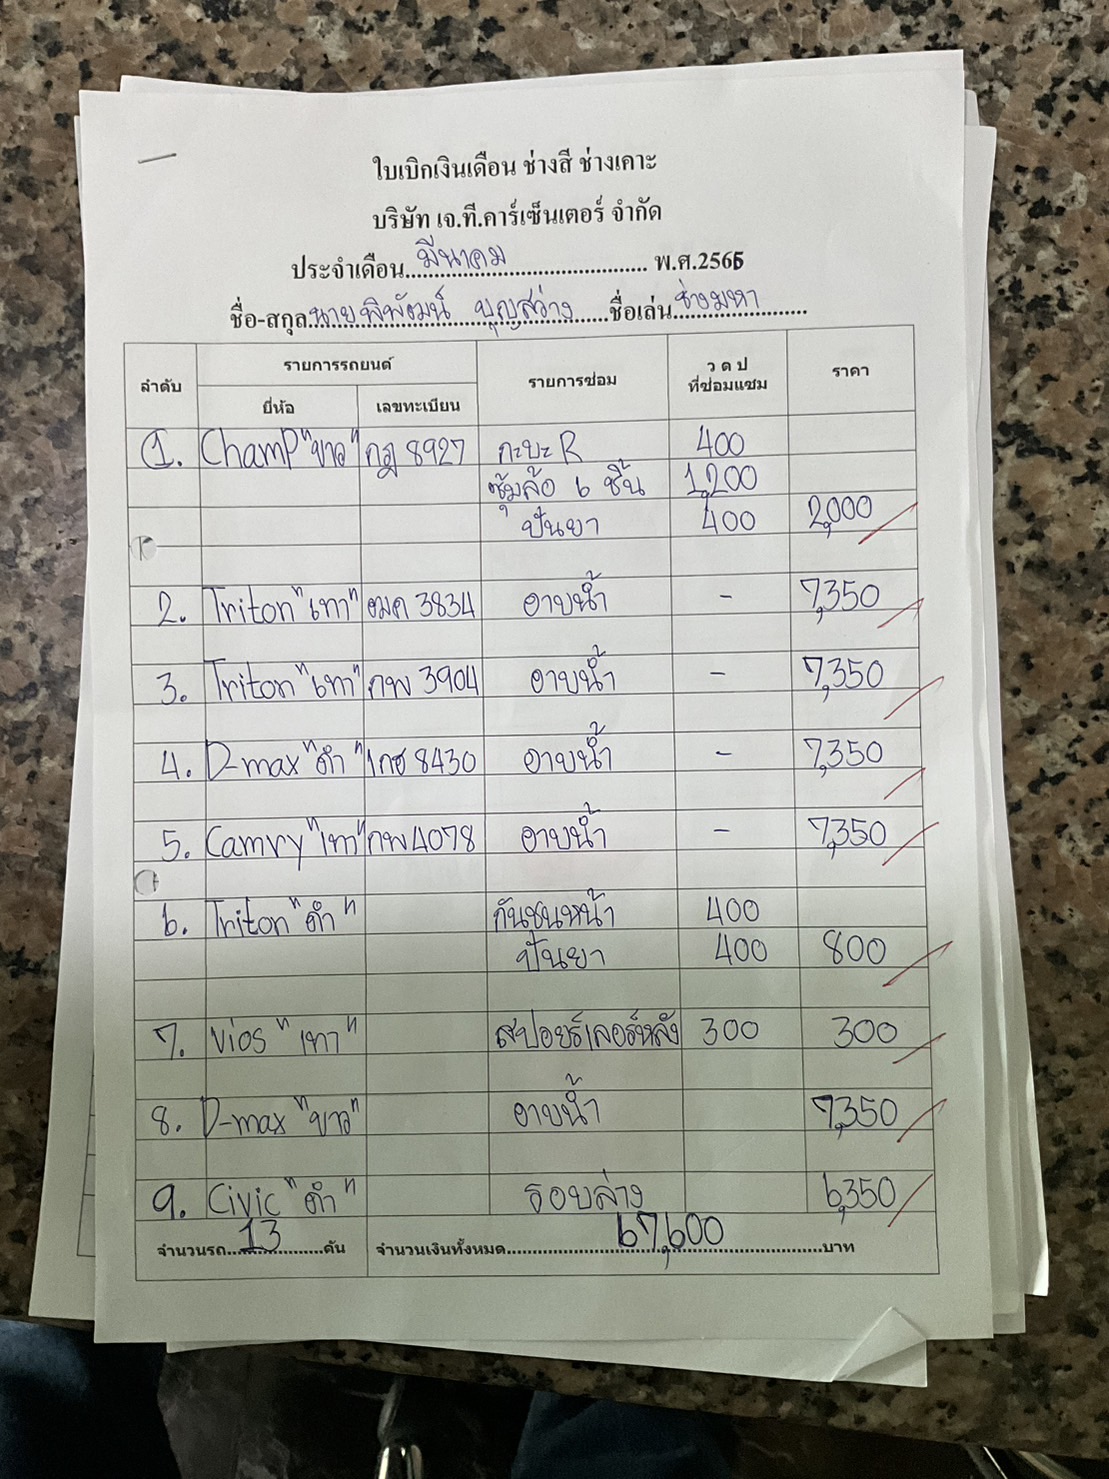 ใบเบิกเงินเดือน ช่างสี ช่างเคาะ
บริษัท เจ.ที.คาร์เซ็นเตอร์ จำกัด
ประจำเดือน มีนาคม พ.ศ.2566
ชื่อ-สกุล นายพิพัฒน์ บุญสว่าง ชื่อเล่น ช่างมหา
ลำดับ รายการรถยนต์ รายการซ่อม ว ด ป ที่ซ่อมแซม ราคา
ยี่ห้อ เลขทะเบียน
1. Champ "ขาว" กฎ 8927 กะบะ R 400
ซุ้มล้อ 6 ชิ้น 1,200
ปั่นยา 400 2,000
2. Triton "เทา" 3834 อาบน้ำ - 7,350
3. Triton "เทา" กพ 3904 อาบน้ำ - 7,350
4. D-max "ดำ" 8430 อาบน้ำ - 7,350
5. Camry "เทา" กพ 4078 อาบน้ำ - 7,350
6. Triton "ดำ" กันชนหน้า 400
ปั่นยา 400 800
7. Vios "เทา" สปอยร์เลอร์หลัง 300 300
8. D-max "ขาว" อาบน้ำ 7,350
9. Civic "ดำ" รอบล่าง 6,350
จำนวนรถ 13 คัน จำนวนเงินทั้งหมด 67,600 บาท